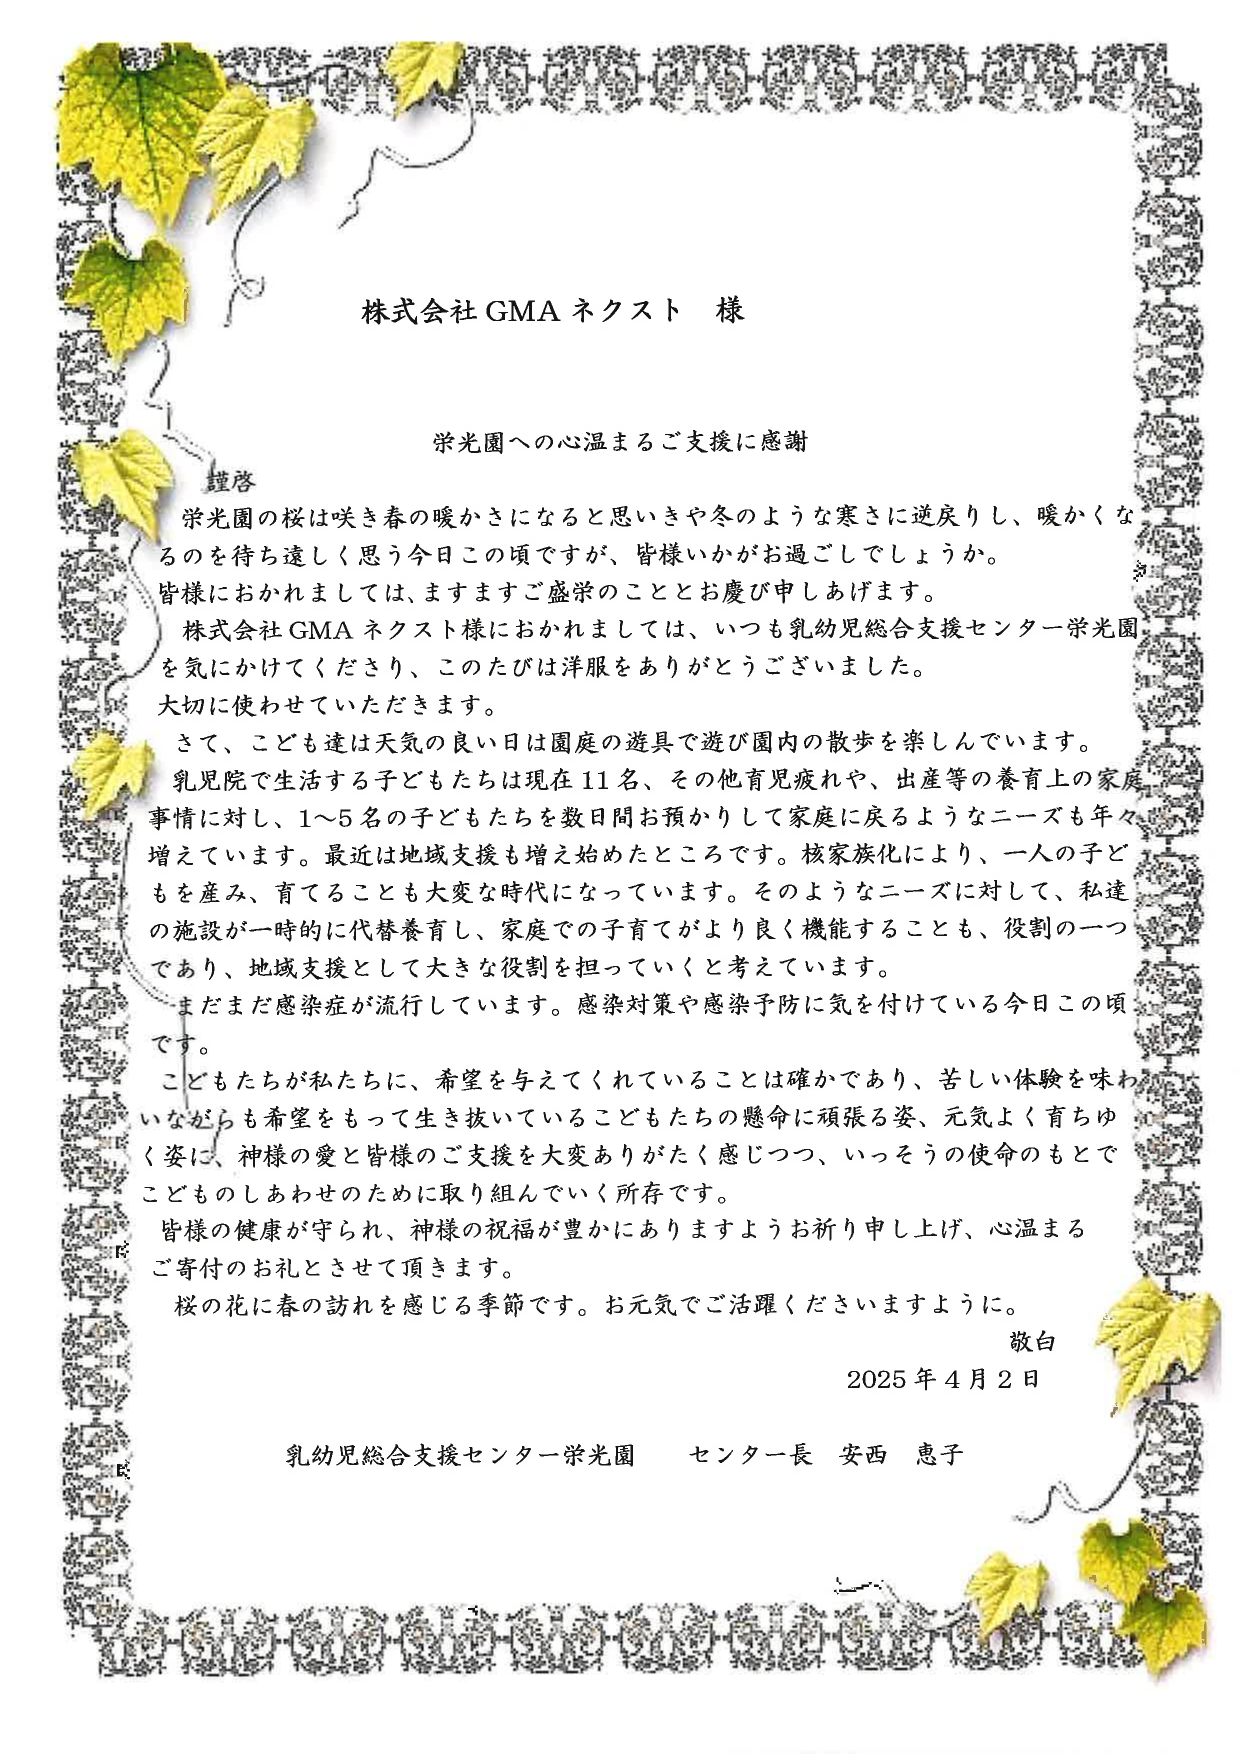 株式会社 GMA ネクスト　様
栄光園への心温まるご支援に感謝
謹啓
栄光園の桜は咲き春の暖かさになると思いきや冬のような寒さに逆戻りし、暖かくな
るのを待ち遠しく思う今日この頃ですが、皆様いかがお過ごしでしょうか。
皆様におかれましては、ますますご盛栄のこととお慶び申しあげます。
株式会社 GMA ネクスト様におかれましては、いつも乳幼児総合支援センター栄光園
を気にかけてくださり、このたびは洋服をありがとうございました。
大切に使わせていただきます。
さて、こども達は天気の良い日は園庭の遊具で遊び園内の散歩を楽しんでいます。
乳児院で生活する子どもたちは現在 11 名、その他育児疲れや、出産等の養育上の家庭
事情に対し、1～5 名の子どもたちを数日間お預かりして家庭に戻るようなニーズも年々
増えています。最近は地域支援も増え始めたところです。核家族化により、一人の子ど
もを産み、育てることも大変な時代になっています。そのようなニーズに対して、私達
の施設が一時的に代替養育し、家庭での子育てがより良く機能することも、役割の一つ
であり、地域支援として大きな役割を担っていくと考えています。
まだまだ感染症が流行しています。感染対策や感染予防に気を付けている今日この頃
です。
こどもたちが私たちに、希望を与えてくれていることは確かであり、苦しい体験を味わ
いながらも希望をもって生き抜いているこどもたちの懸命に頑張る姿、元気よく育ちゆ
く姿に、神様の愛と皆様のご支援を大変ありがたく感じつつ、いっそうの使命のもとで
こどものしあわせのために取り組んでいく所存です。
皆様の健康が守られ、神様の祝福が豊かにありますようお祈り申し上げ、心温まる
ご寄付のお礼とさせて頂きます。
桜の花に春の訪れを感じる季節です。お元気でご活躍くださいますように。
敬白
2025 年 4 月 2 日
乳幼児総合支援センター栄光園　　センター長　安西　恵子